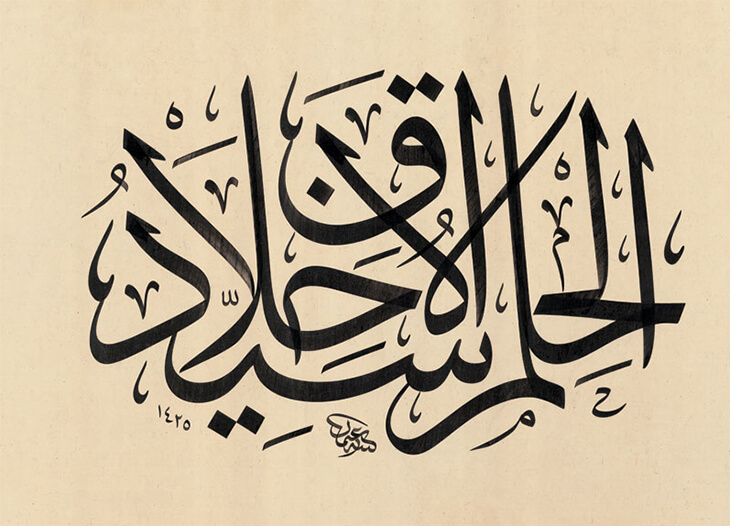 الحلم سيد الاخلاق
١٤٢٥